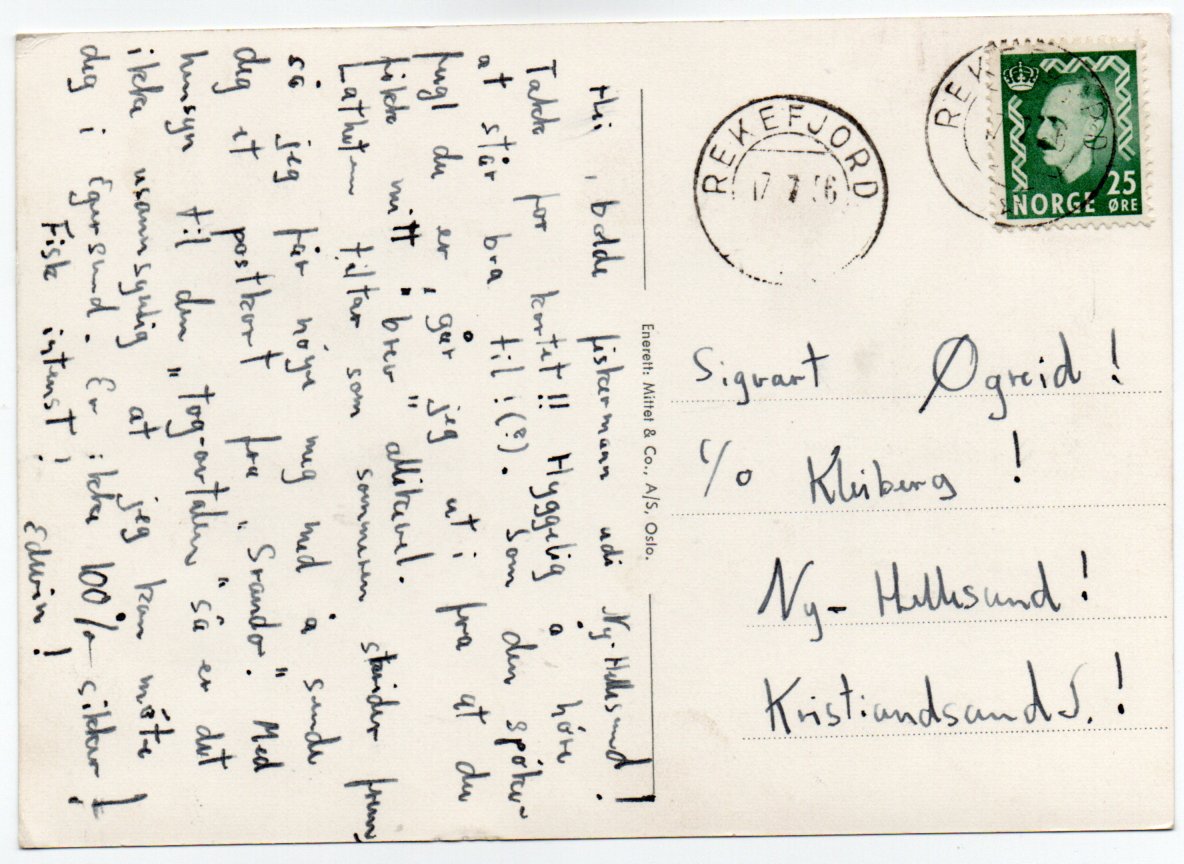 Hei, bolde fiskermann udi Ny-Hellesund!
Takk for kortet!! Hyggelig å høre
at står bra til!(?). Som den spøke-
fugl du er, går jeg ut i fra at du
fikk mitt "brev" allikevel.
Latheten tiltar som sommeren skrider frem,
så jeg får nøye meg med å sende
deg et postkort fra "Strando". Med
hensyn til den "tog-avtalen" så er det
ikke usannsynlig at jeg kan møte
deg i Egersund. Er ikke 100% sikker!
Fisk intenst!
Edwin!
Enerett: Mittet & Co., A/S, Oslo.
REKEFJORD
17 7 56
REKEFJORD
25
NORGE ØRE
Sigvart Øgreid!
c/o Kleiberg!
Ny-Hellesund!
Kristiandsand S.!